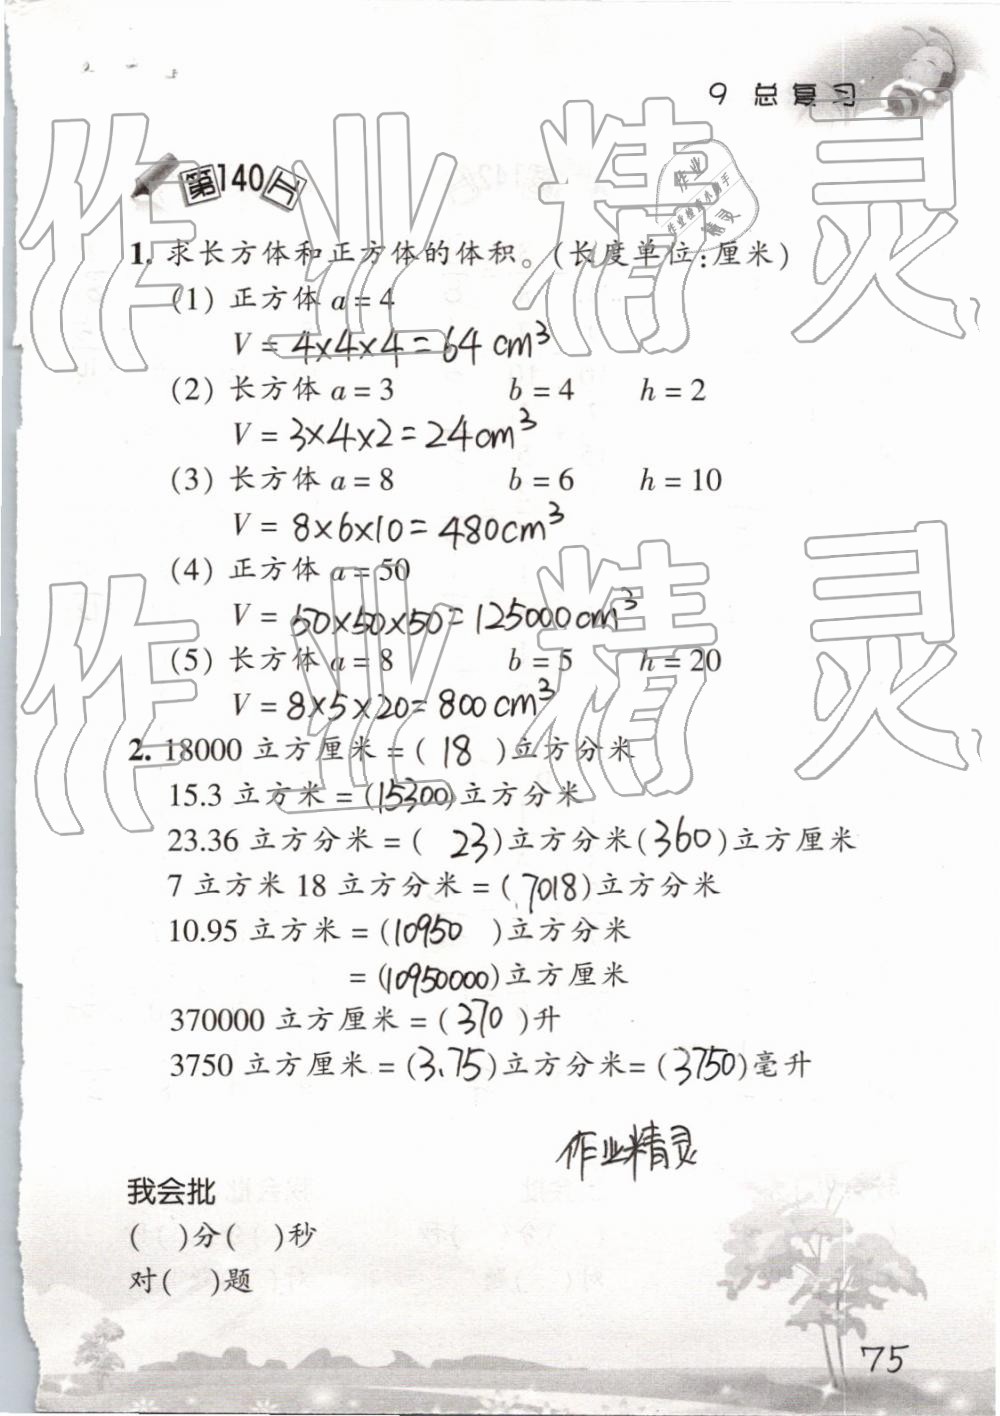 9 总复习
第140天
1. 求长方体和正方体的体积。(长度单位:厘米)
(1) 正方体 a = 4
V = 4×4×4 = 64 cm³
(2) 长方体 a = 3 b = 4 h = 2
V = 3×4×2 = 24cm³
(3) 长方体 a = 8 b = 6 h = 10
V = 8×6×10 = 480cm³
(4) 正方体 a = 50
V = 50×50×50 = 125000cm³
(5) 长方体 a = 8 b = 5 h = 20
V = 8×5×20 = 800cm³
2. 18000 立方厘米 = ( 18 )立方分米
15.3 立方米 = (15300)立方分米
23.36 立方分米 = ( 23)立方分米(360)立方厘米
7 立方米 18 立方分米 = (7018)立方分米
10.95 立方米 = (10950 )立方分米
= (10950000)立方厘米
370000 立方厘米 = (370 )升
3750 立方厘米 = (3.75)立方分米= (3750)毫升
作业精灵
我会批
( )分( )秒
对( )题
75
作业精灵
作业精灵
作业
作业检查小助手
精灵